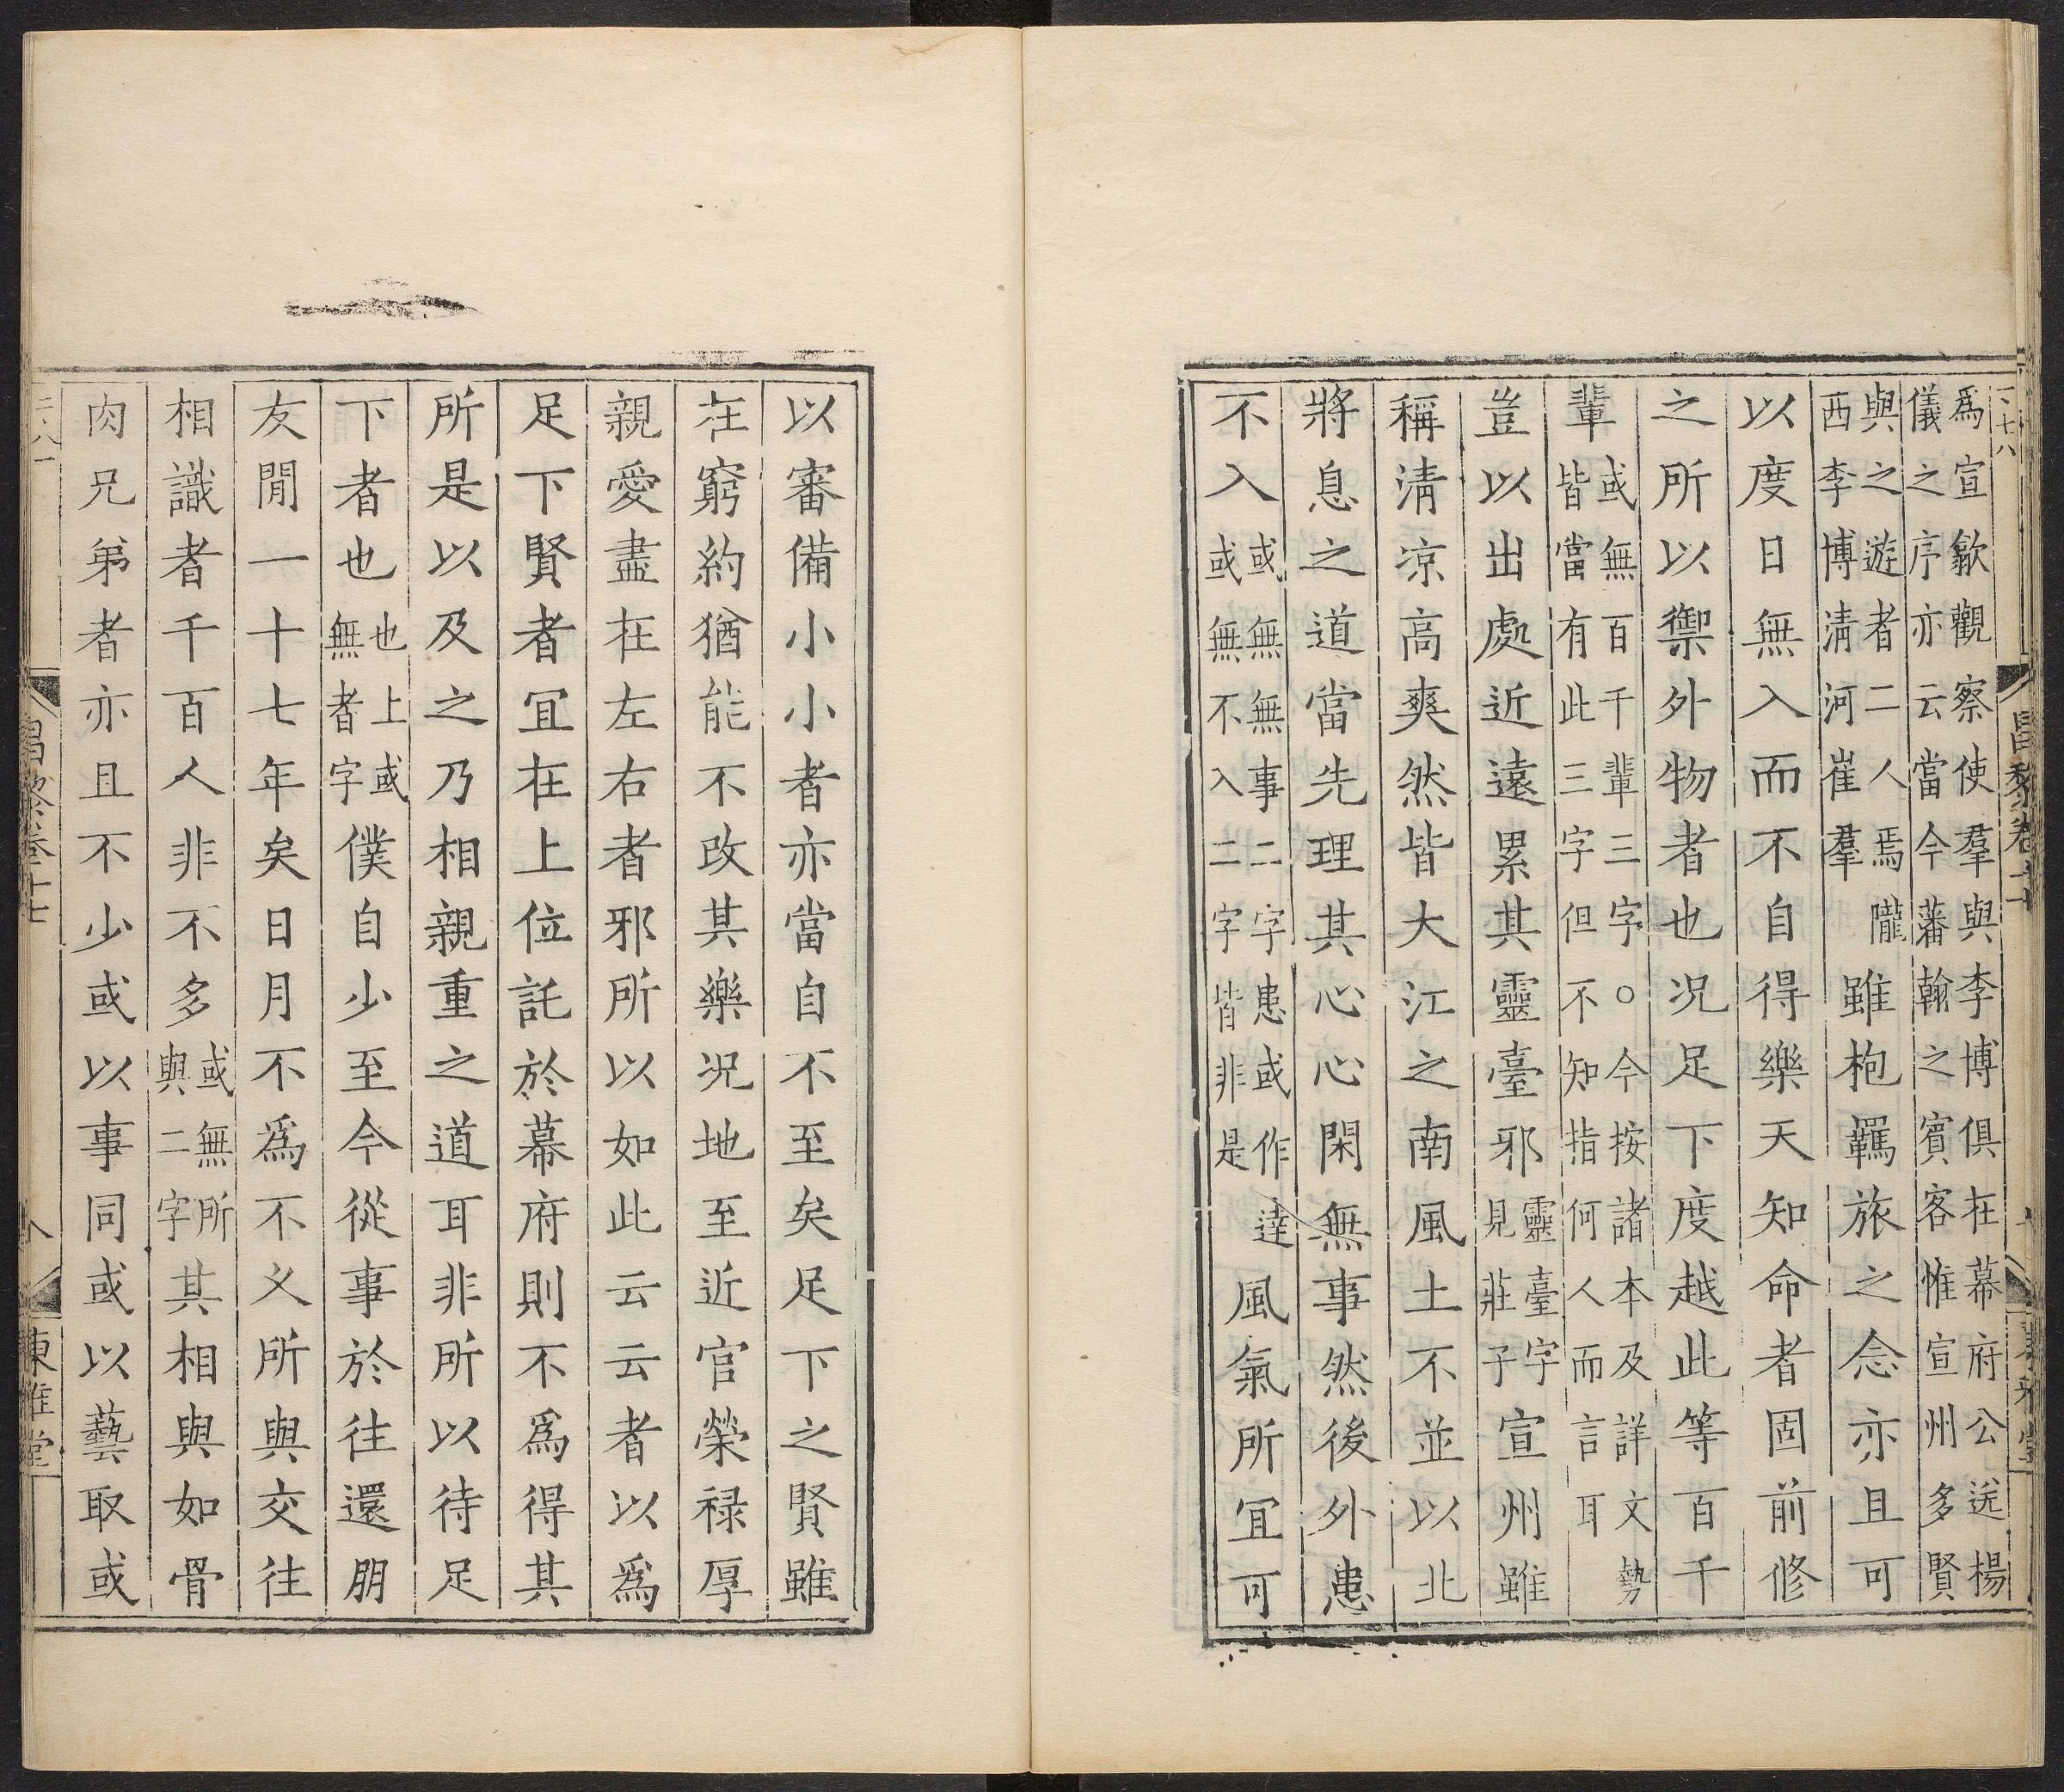 爲宣歙觀察使羣與李博俱在幕府公送楊
儀之序亦云當今藩翰之賓客惟宣州多賢
與之遊者二人焉隴
西李博清河崔羣
雖抱羈旅之念亦且可
以度日無入而不自得樂天知命者固前修
之所以禦外物者也况足下度越此等百千
輩
或無百千輩三字○今按諸本及詳文勢
皆當有此三字但不知指何人而言耳
豈以出處近遠累其靈臺邪
靈臺字
見莊子
宣州雖
稱淸凉高爽然皆大江之南風土不並以北
將息之道當先理其心心閑無事然後外患
不入
或無無事二字患或作達
或無不入二字皆非是
風氣所冝可
以審備小小者亦當自不至矣足下之賢雖
在窮約猶能不改其樂况地至近官榮禄厚
親愛盡在左右者邪所以如此云云者以爲
足下賢者冝在上位託於幕府則不爲得其
所是以及之乃相親重之道耳非所以待足
下者也
也上或
無者字
僕自少至今從事於往還朋
友閒一十七年矣日月不爲不乆所與交往
相識者千百人非不多
或無所
與二字
其相與如骨
肉兄弟者亦且不少或以事同或以藝取或
昌黎卷十七
八
東雅堂